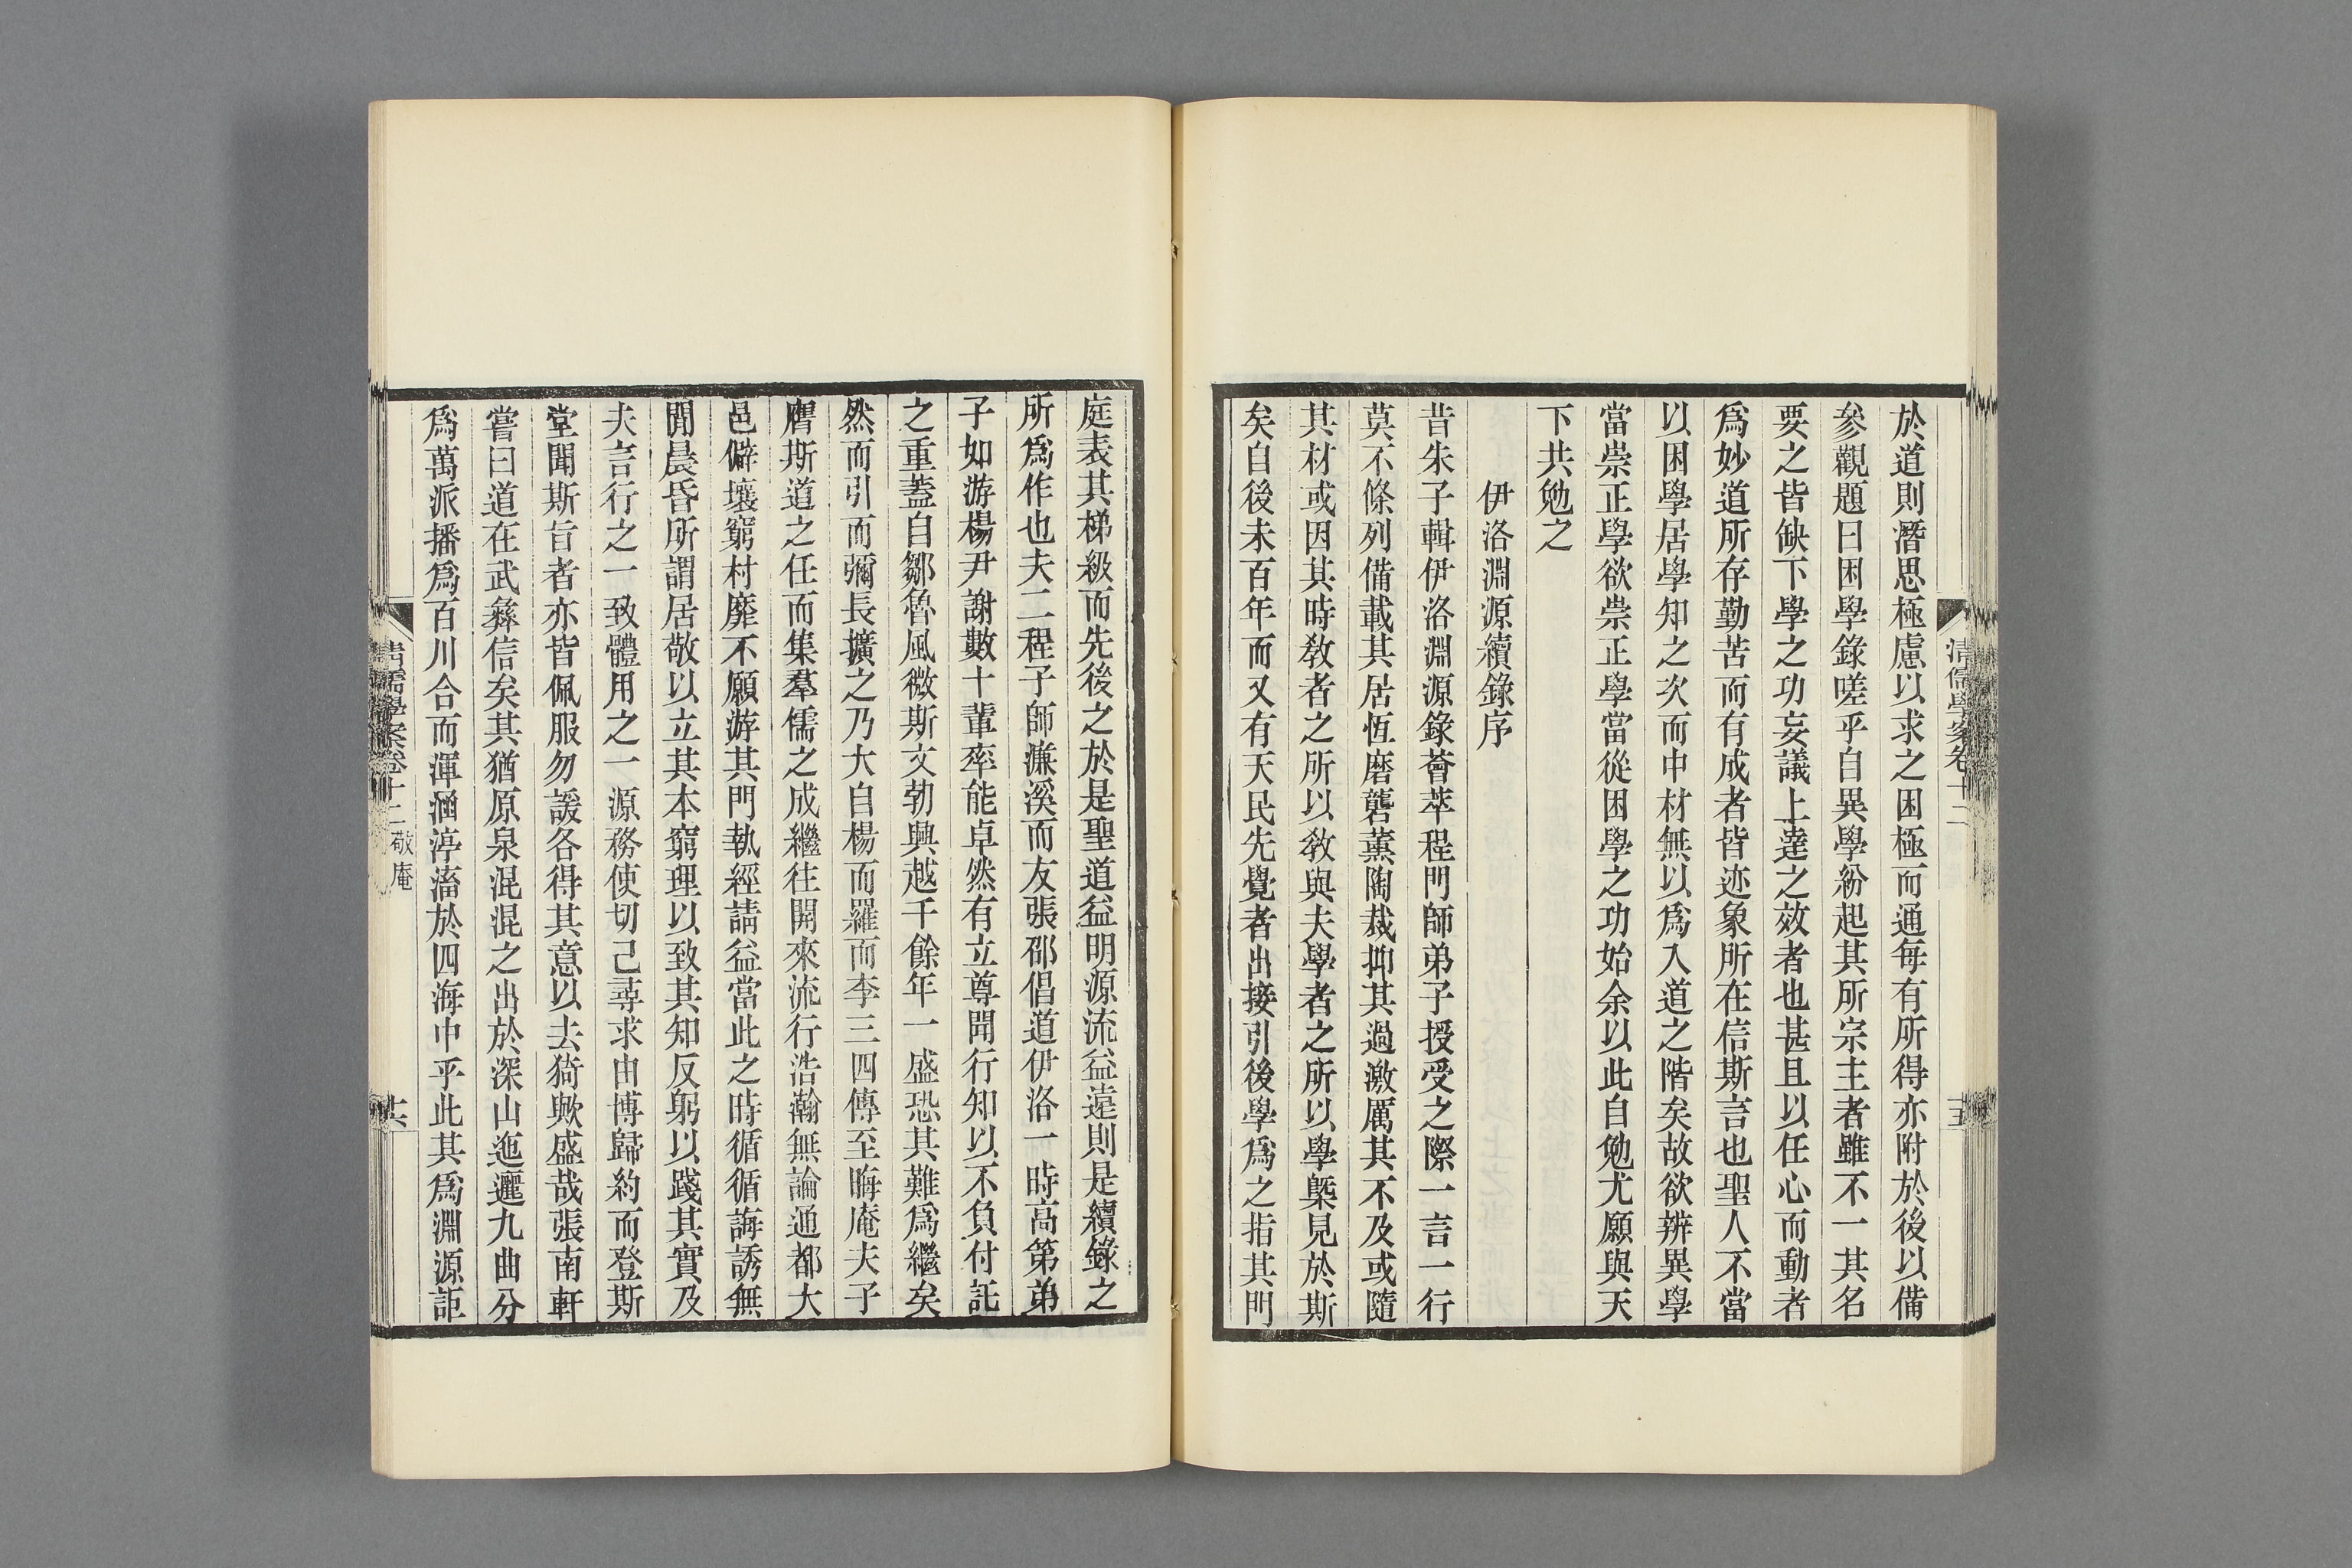 清儒學案卷十二
十五
於道則潛思極慮以求之困極而通每有所得亦附於後以備
參觀題曰困學錄嗟乎自異學紛起其所宗主者雖不一其名
要之皆缺下學之功妄議上達之效者也甚且以任心而動者
爲妙道所存勤苦而有成者皆迹象所在信斯言也聖人不當
以困學居學知之次而中材無以爲入道之階矣故欲辨異學
當崇正學欲崇正學當從困學之功始余以此自勉尤願與天
下共勉之
伊洛淵源續錄序
昔朱子輯伊洛淵源錄薈萃程門師弟子授受之際一言一行
莫不條列備載其居恆磨礱薰陶裁抑其過激厲其不及或隨
其材或因其時敎者之所以敎與夫學者之所以學槩見於斯
矣自後未百年而又有天民先覺者出接引後學爲之指其門
庭表其梯級而先後之於是聖道益明源流益遠則是續錄之
所爲作也夫二程子師濂溪而友張邵倡道伊洛一時高第弟
子如游楊尹謝數十輩率能卓然有立尊聞行知以不負付託
之重蓋自鄒魯風微斯文勃興越千餘年一盛恐其難爲繼矣
然而引而彌長擴之乃大自楊而羅而李三四傳至晦庵夫子
膺斯道之任而集羣儒之成繼往開來流行浩瀚無論通都大
邑僻壤窮村靡不願游其門執經請益當此之時循循誨誘無
閒晨昏所謂居敬以立其本窮理以致其知反躬以踐其實及
夫言行之一致體用之一源務使切己尋求由博歸約而登斯
堂聞斯旨者亦皆佩服勿諼各得其意以去猗歟盛哉張南軒
嘗曰道在武彝信矣其猶原泉混混之出於深山迤邐九曲分
爲萬派播爲百川合而渾涵渟滀於四海中乎此其爲淵源詎
清儒學案卷十二 敬庵
十六